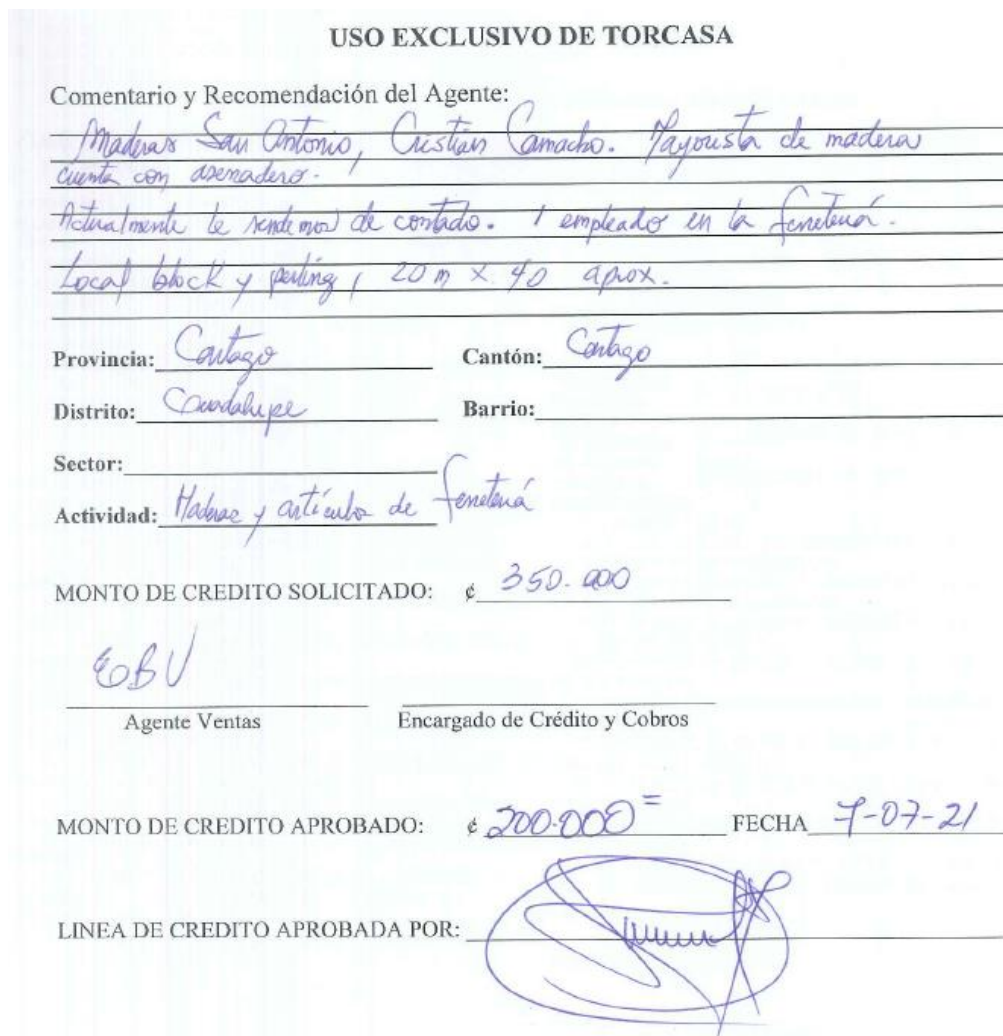 USO EXCLUSIVO DE TORCASA
Comentario y Recomendación del Agente:
Maderas San Antonio, Cristian Camacho. Mayorista de madera
cuenta con aserradero.
Actualmente le vendemos de contado. 1 empleado en la ferretería.
Local block y perling, 20 m x 40 aprox.
Provincia: Cartago Cantón: Cartago
Distrito: Guadalupe Barrio:
Sector:
Actividad: Maderas y artículos de ferretería
MONTO DE CREDITO SOLICITADO: ¢ 350.000
EBV
Agente Ventas Encargado de Crédito y Cobros
MONTO DE CREDITO APROBADO: ¢ 200.000= FECHA 7-07-21
LINEA DE CREDITO APROBADA POR: